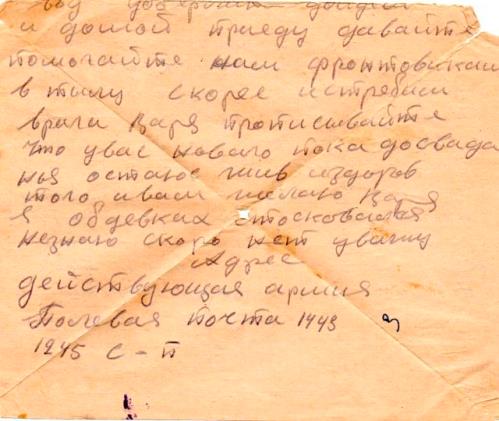 и домой приеду давайте
помогайте нам фронтовикам
в тылу скорее истребим
врага Варя прописывайте
что увас новаго пока досвида
нья остаюс жив издоров
того ивам желаю Варя
я обдевках стосковался
незнаю скоро нет увижу
Адрес
действующая армия
Полевая почта 1443
1245 С-П